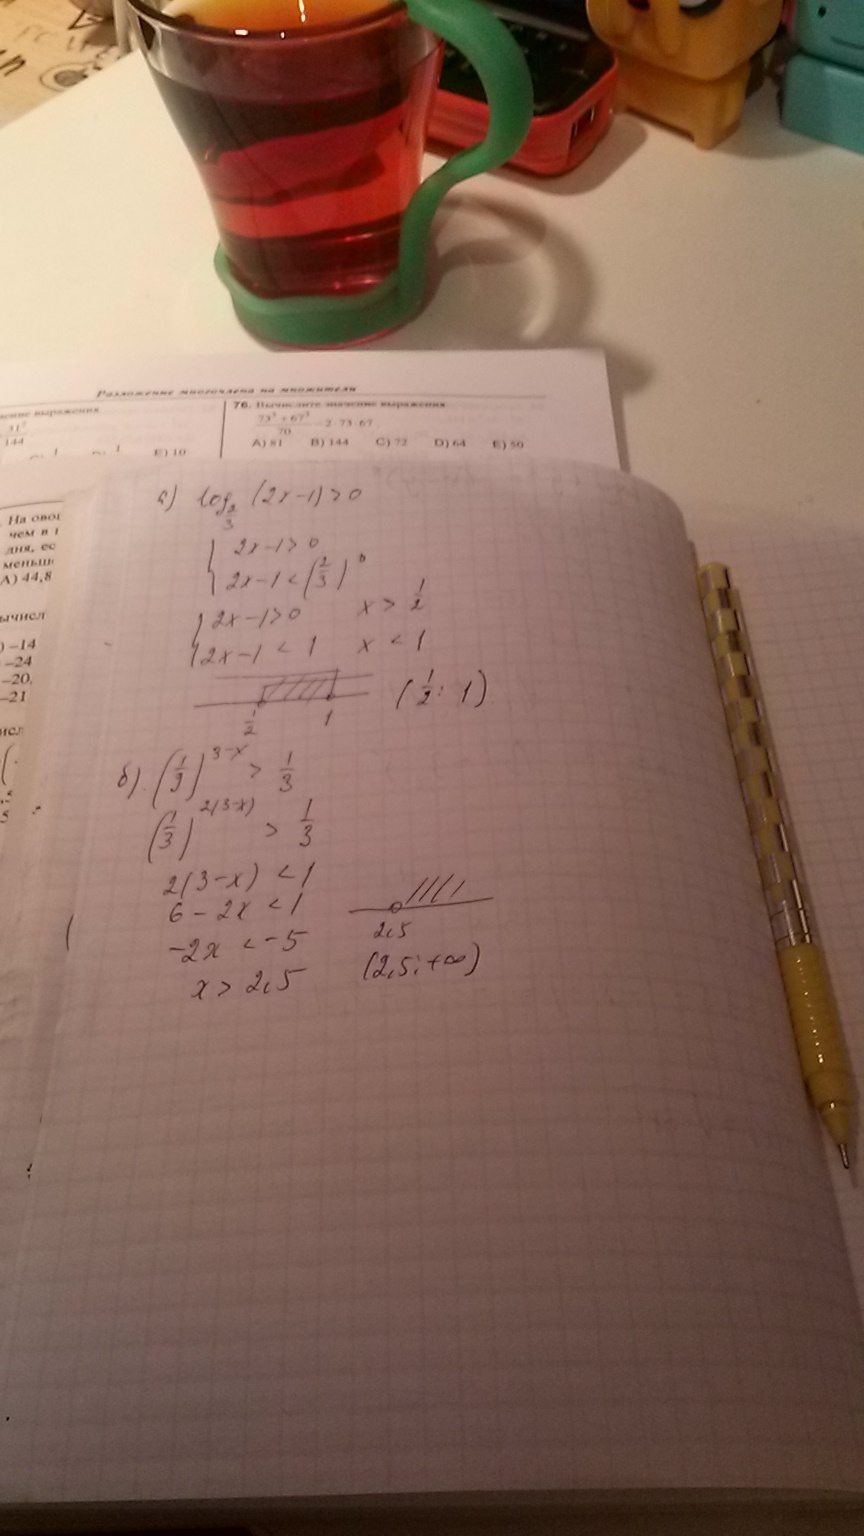 Разложение многочлена на множители
ение выражения
31²
144
E) 10
76. Вычислите значение выражения
(73³ + 67³)/70 − 2 · 73 · 67.
A) 81 B) 144 C) 72 D) 64 E) 50
На овощ
чем в
дня, ес
меньш
A) 44,8
ычисл
) −14
−24
−20,
−21
а) log_{2/3} (2x−1) > 0
{ 2x−1 > 0
2x−1 < (2/3)⁰
{ 2x−1 > 0 x > 1/2
2x−1 < 1 x < 1
1/2 1 (1/2; 1)
б). (1/9)^{3−x} > 1/3
(1/3)^{2(3−x)} > 1/3
2(3−x) < 1
6 − 2x < 1
2,5
−2x < −5
x > 2,5 (2,5; +∞)